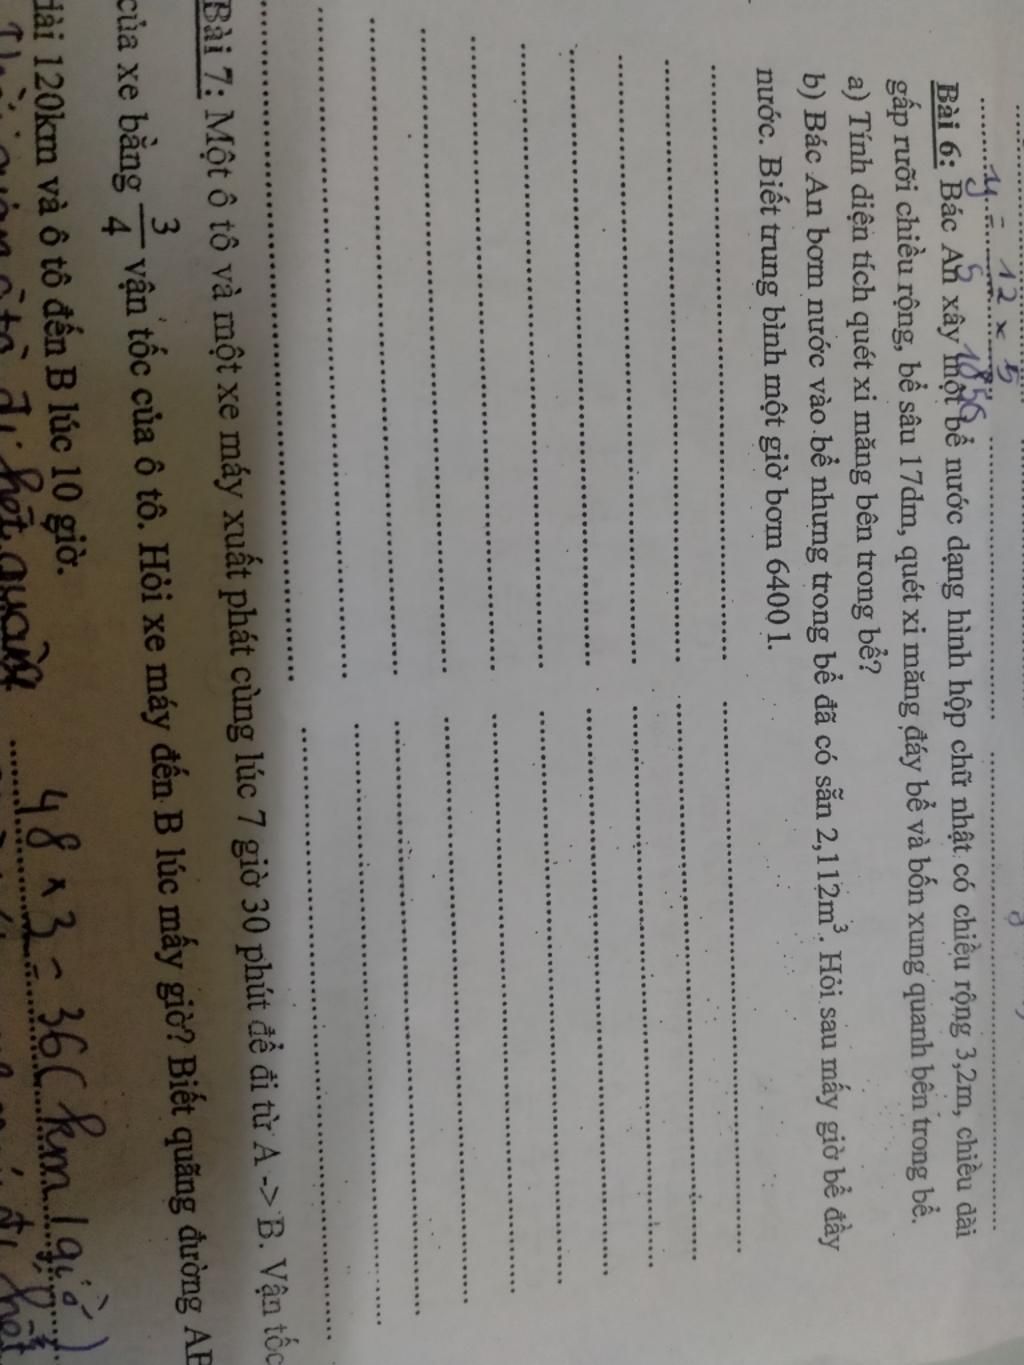 y = 12 x 5
Bài 6: Bác An xây một bể nước dạng hình hộp chữ nhật có chiều rộng 3,2m, chiều dài
gấp rưỡi chiều rộng, bể sâu 17dm, quét xi măng đáy bể và bốn xung quanh bên trong bể.
a) Tính diện tích quét xi măng bên trong bể?
b) Bác An bơm nước vào bể nhưng trong bể đã có sẵn 2,112m³. Hỏi sau mấy giờ bể đầy
nước. Biết trung bình một giờ bơm 6400 l.
Bài 7: Một ô tô và một xe máy xuất phát cùng lúc 7 giờ 30 phút để đi từ A -> B. Vận tốc
của xe bằng 3/4 vận tốc của ô tô. Hỏi xe máy đến B lúc mấy giờ? Biết quãng đường AB
dài 120km và ô tô đến B lúc 10 giờ.
48 x 3 = 36 (km/giờ)
Thời gian ô tô đi hết quãng